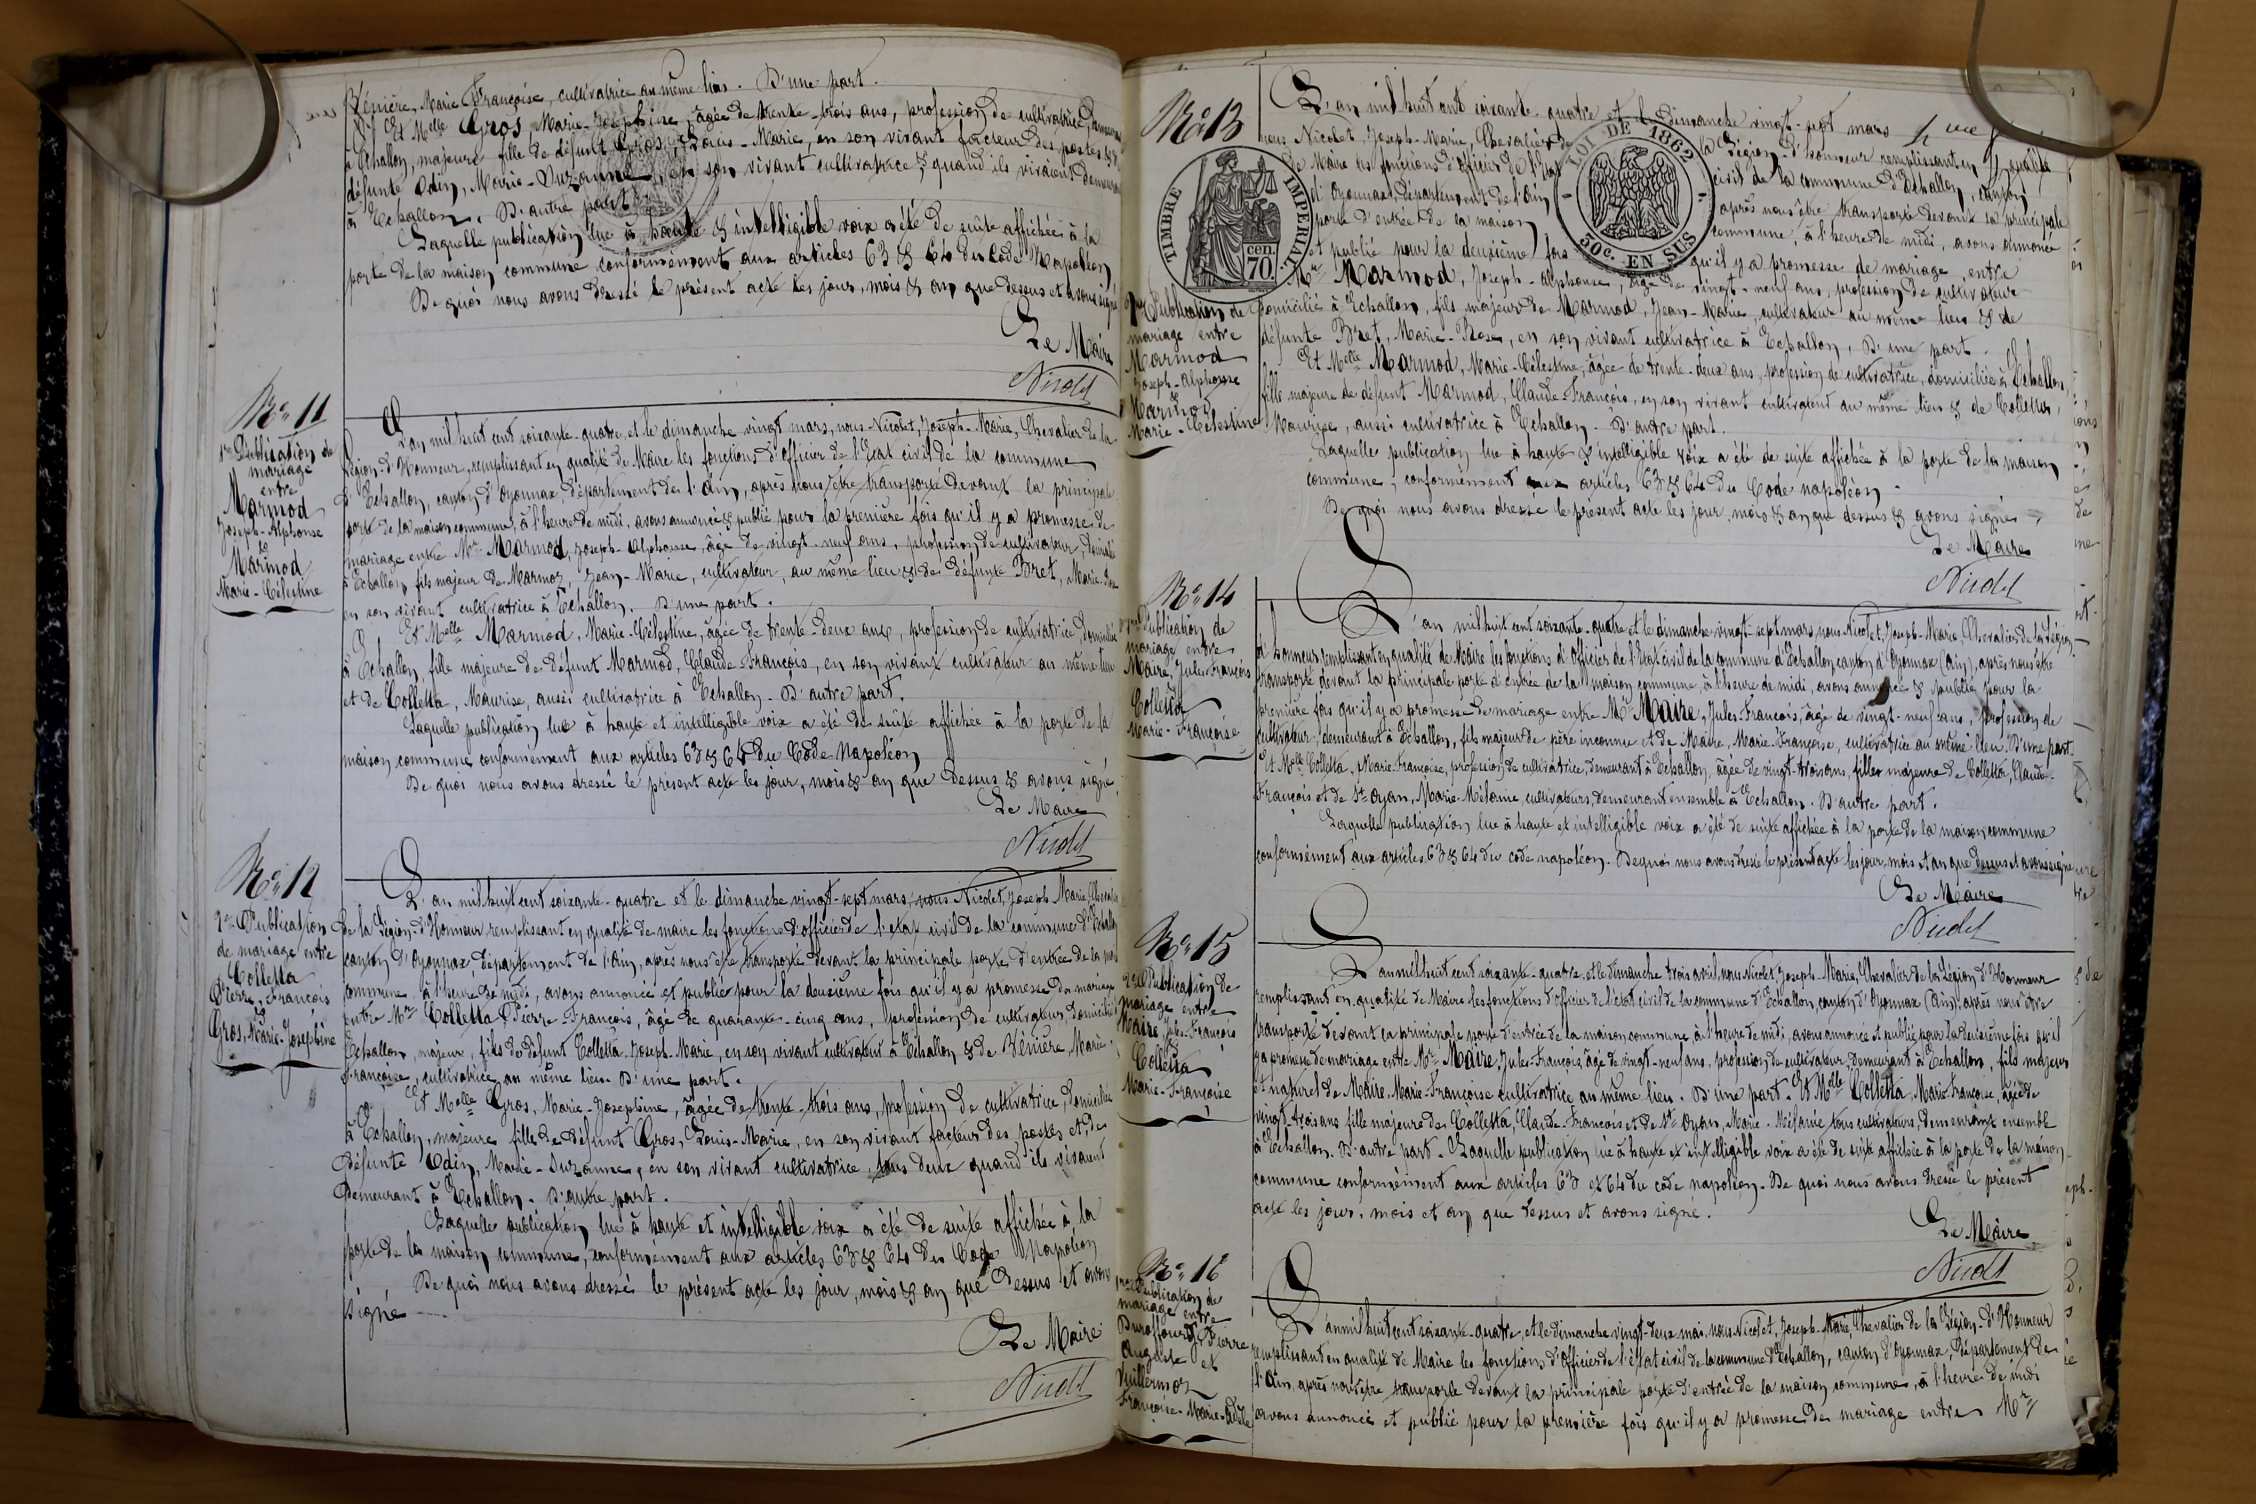 Vénière, Marie Françoise, cultivatrice au même lieu. D'une part.
Et Melle Gros, Marie-Joséphine, âgée de trente-trois ans, profession de cultivatrice,
à Echallon, majeure fille de défunt Gros, Louis-Marie, en son vivant facteur des postes & de
défunte Odin, Marie-Suzanne, en son vivant cultivatrice & quand ils vivaient
à Echallon. D'autre part.
Laquelle publication lue à haute & intelligible voix a été de suite affichée à la
porte de la maison commune conformément aux articles 63 & 64 du Code Napoléon
De quoi nous avons dressé le présent acte les jour, mois & an que dessus et avons signé
Le Maire
Nicolet
No 11
1re Publication de
mariage
entre
Marmod
Joseph-Alphonse
&
Marmod
Marie-Célestine
L'an mil huit cent soixante-quatre, et le dimanche vingt mars, nous Nicolet, Joseph-Marie, Chevalier de la
Légion d'Honneur, remplissant en qualité de Maire les fonctions d'officier de l'Etat civil de la commune
d'Echallon, canton d'Oyonnax, département de l'Ain, après nous être transporté devant la principale
porte de la maison commune, à l'heure de midi, avons annoncé & publié pour la première fois qu'il y a promesse de
mariage entre Mr Marmod, Joseph-Alphonse, âgé de vingt-neuf ans, profession de cultivateur, domicilié
à Echallon, fils majeur de Marmod, Jean-Marie, cultivateur, au même lieu & de défunte Bret, Marie-Rose
en son vivant cultivatrice à Echallon. D'une part.
Et Melle Marmod, Marie-Célestine, âgée de trente-deux ans, profession de cultivatrice, domiciliée
à Echallon, fille majeure de défunt Marmod, Claude-François, en son vivant cultivateur au même lieu
et de Colletta, Maurise, aussi cultivatrice à Echallon. D'autre part.
Laquelle publication lue à haute et intelligible voix a été de suite affichée à la porte de la
maison commune conformément aux articles 63 & 64 du Code Napoléon
De quoi nous avons dressé le présent acte les jour, mois & an que dessus & avons signé.
Le Maire
Nicolet
No 12
2e Publication
de mariage entre
Colletta
Pierre, François
&
Gros, Marie-Joséphine
L'an mil huit cent soixante-quatre et le dimanche vingt-sept mars, nous Nicolet, Joseph Marie, Chevalier
de la Légion d'Honneur remplissant en qualité de maire les fonctions d'officier de l'état civil de la commune d'Echallon
canton d'Oyonnax, département de l'Ain, après nous être transporté devant la principale porte d'entrée de la
commune, à l'heure de midi, avons annoncé et publié pour la deuxième fois qu'il y a promesse de mariage
entre Mr Colletta Pierre-François, âgé de quarante-cinq ans, profession de cultivateur, domicilié
Echallon, majeur, fils de défunt Colletta Joseph-Marie, en son vivant cultivateur à Echallon & de Vénière Marie
Françoise, cultivatrice au même lieu. D'une part.
Et Melle Gros, Marie-Joséphine, âgée de trente-trois ans, profession de cultivatrice, domiciliée
à Echallon, majeure fille de défunt Gros, Louis-Marie, en son vivant facteur des postes et de
défunte Odin, Marie-Suzanne, en son vivant cultivatrice, tous deux quand ils vivaient
demeurant à Echallon. D'autre part.
Laquelle publication lue à haute et intelligible voix a été de suite affichée à la
porte de la maison commune, conformément aux articles 63 & 64 du Code Napoléon
De quoi nous avons dressé le présent acte les jour, mois & an que dessus et avons
signé
Le Maire
Nicolet
TIMBRE IMPERIAL
70 cen.
LOI DE 1862
50c. EN SUS
No 13
2me Publication de
mariage entre
Marmod
Joseph-Alphonse
&
Marmod
Marie-Célestine
L'an mil huit cent soixante-quatre et le dimanche vingt-sept mars
nous Nicolet, Joseph-Marie, Chevalier de la Légion d'honneur remplissant en qualité
de Maire les fonctions d'officier de l'Etat civil de la commune d'Echallon, canton
d'Oyonnax, Département de l'Ain, après nous être transporté devant la principale
porte d'entrée de la maison commune, à l'heure de midi, avons annoncé
et publié pour la deuxième fois qu'il y a promesse de mariage entre
Mr Marmod, Joseph-Alphonse, âgé de vingt-neuf ans, profession de cultivateur
domicilié à Echallon, fils majeur de Marmod, Jean-Marie, cultivateur au même lieu & de
défunte Bret, Marie-Rose, en son vivant cultivatrice à Echallon, D'une part.
Et Melle Marmod, Marie-Célestine, âgée de trente-deux ans, profession de cultivatrice, domiciliée à Echallon,
fille majeure de défunt Marmod, Claude-François, en son vivant cultivateur au même lieu & de Colletta,
Maurise, aussi cultivatrice à Echallon. D'autre part.
Laquelle publication lue à haute & intelligible voix a été de suite affichée à la porte de la maison
commune, conformément aux articles 63 & 64 du Code napoléon.
De quoi nous avons dressé le présent acte les jour, mois & an que dessus & avons signé
Le Maire
Nicolet
No 14
1re Publication de
mariage entre
Maire, Jules-François
&
Colletta
Marie-Françoise
L'an mil huit cent soixante-quatre et le dimanche vingt-sept mars nous Nicolet, Joseph-Marie, Chevalier de la Légion
d'honneur remplissant en qualité de Maire les fonctions d'Officier de l'Etat civil de la commune d'Echallon, canton d'Oyonnax (Ain), après nous être
transporté devant la principale porte d'entrée de la maison commune, à l'heure de midi, avons annoncé & publié pour la
première fois qu'il y a promesse de mariage entre Mr Maire, Jules-François, âgé de vingt-neuf ans, profession de
cultivateur, demeurant à Echallon, fils majeur de père inconnu et de Maire, Marie-Françoise, cultivatrice au même lieu. D'une part.
Et Melle Colletta, Marie-Françoise, profession de cultivatrice, demeurant à Echallon, âgée de vingt-trois ans, fille majeure de Colletta, Claude-
François et de St-Oyan, Marie-Mélanie, cultivateurs, demeurant ensemble à Echallon. D'autre part.
Laquelle publication lue à haute et intelligible voix a été de suite affichée à la porte de la maison commune
conformément aux articles 63 & 64 du code napoléon. De quoi nous avons dressé le présent acte les jour, mois et an que dessus et avons signé
Le Maire
Nicolet
No 15
2me Publication de
mariage entre
Maire Jules-François
&
Colletta
Marie-Françoise
L'an mil huit cent soixante-quatre et le dimanche trois avril, nous Nicolet Joseph-Marie, Chevalier de la Légion d'Honneur
remplissant en qualité de Maire les fonctions d'officier de l'état civil de la commune d'Echallon, canton d'Oyonnax (Ain), après nous être
transporté devant la principale porte d'entrée de la maison commune à l'heure de midi, avons annoncé et publié pour la deuxième fois qu'il
y a promesse de mariage entre Mr Maire Jules-François, âgé de vingt-neuf ans, profession de cultivateur, demeurant à Echallon, fils majeur
et naturel de Maire Marie-Françoise cultivatrice au même lieu. D'une part. Et Melle Colletta, Marie Françoise, âgée de
vingt-trois ans fille majeure de Colletta, Claude-François et de St-Oyan, Marie-Mélanie tous cultivateurs, demeurant ensemble
à Echallon. D'autre part. Laquelle publication lue à haute et intelligible voix a été de suite affichée à la porte de la maison
commune conformément aux articles 63 et 64 du code napoléon. De quoi nous avons dressé le présent
acte les jour, mois et an que dessus et avons signé.
Le Maire
Nicolet
No 16
1re Publication de
mariage entre
Duraffourg, Pierre
Auguste et
Vuillermoz
Françoise-Marie-Adèle
L'an mil huit cent soixante-quatre, et le dimanche vingt-deux mai, nous Nicolet, Joseph-Marie, Chevalier de la Légion-d'Honneur
remplissant en qualité de Maire les fonctions d'Officier de l'état civil de la commune d'Echallon, canton d'Oyonnax, Département de
l'Ain, après nous être transporté devant la principale porte d'entrée de la maison commune, à l'heure de midi
avons annoncé et publié pour la première fois qu'il y a promesse de mariage entre Mr